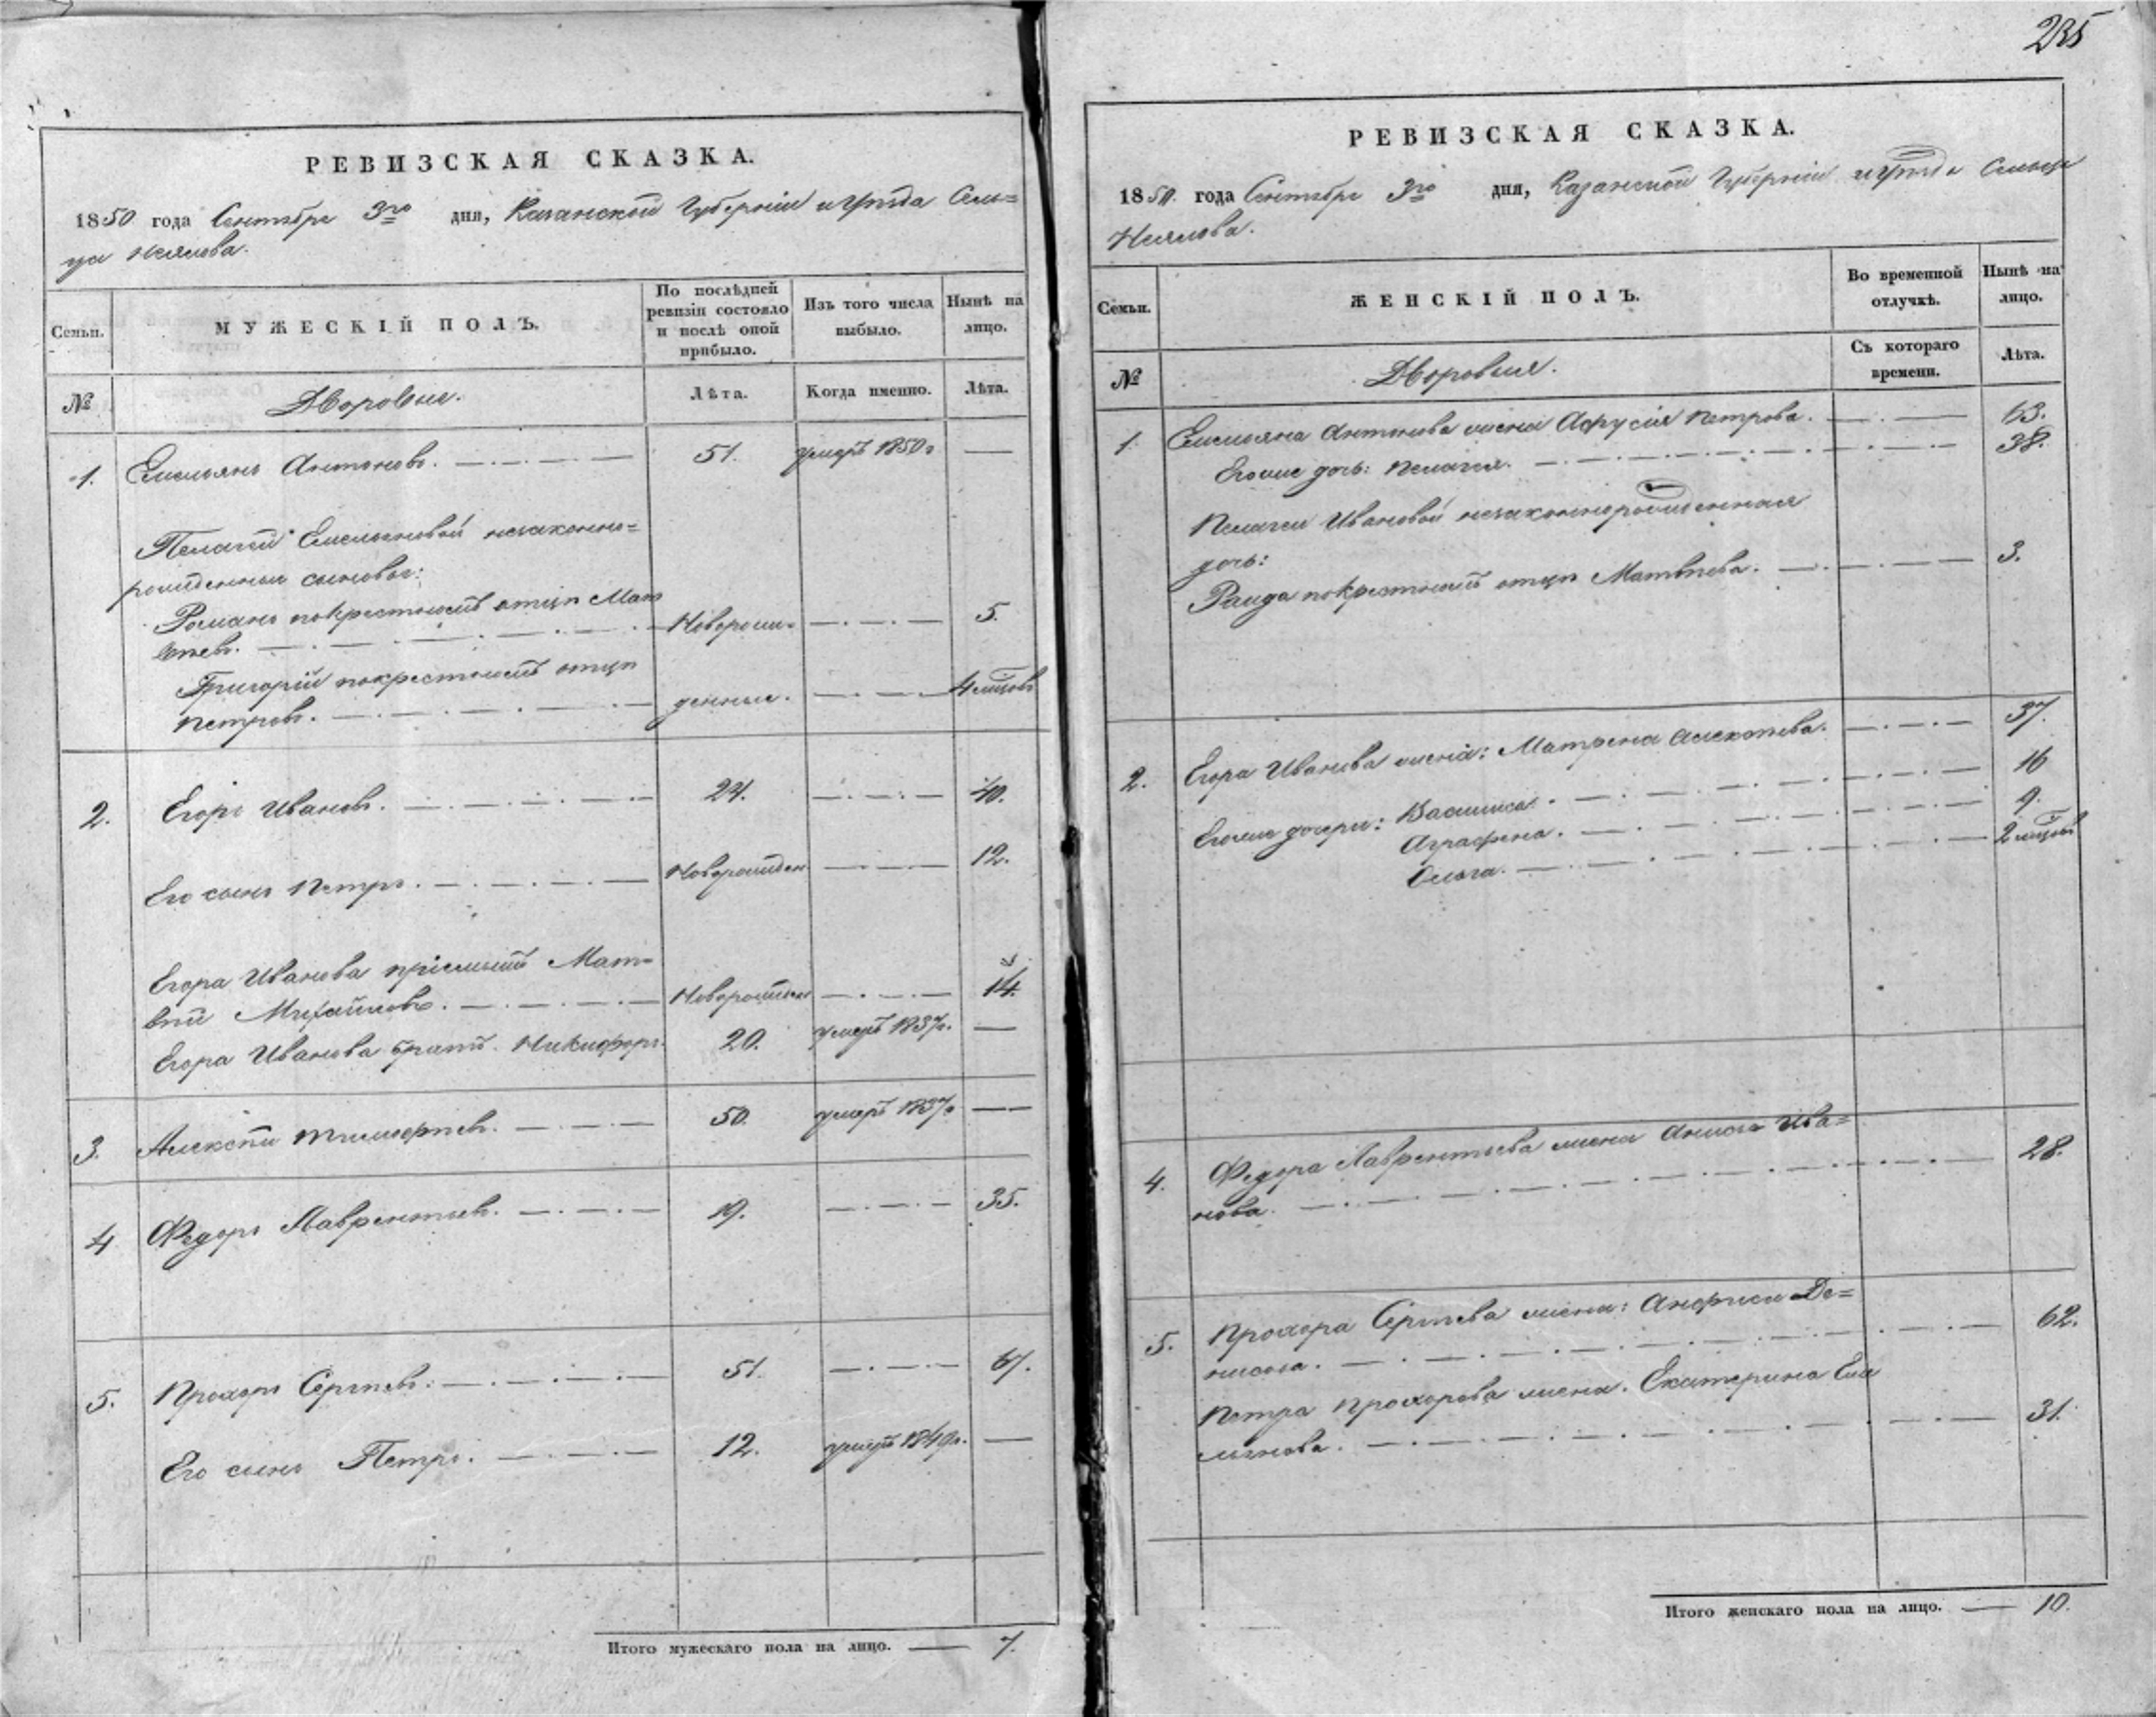 235
РЕВИЗСКАЯ СКАЗКА.
1850 года Сентября 3го дня, Казанской Губернiи и уѣзда Сель=
ца Неялова.
Семьи.
МУЖЕСКIЙ ПОЛЪ.
По послѣдней
ревизiи состояло
и послѣ оной
прибыло.
Изъ того числа
выбыло.
Нынѣ на
лицо.
№
Дворовые.
Лѣта.
Когда именно.
Лѣта.
1. Емельянъ Антоновъ. 51. умеръ 1850 г
Пелагеи Емельяновой незаконно=
рожденные сыновья:
Романъ по крестномъ отцѣ Мат
вѣевъ. Новорож= 5.
Григорiй по крестномъ отцѣ
Петровъ. денные. 4 мѣсцовъ
2. Егоръ Ивановъ. 24. 40.
Его сынъ Петръ. Новорожден 12.
Егора Иванова прiемышъ Мат=
вѣй Михайловъ. Новорожден 14.
Егора Иванова братъ. Никифоръ. 20. умеръ 1837 г.
3. Алексѣй Тимофеевъ. 50. умеръ 1837 г
4 Федоръ Лаврентьевъ. 19. 35.
5. Прохоръ Сергѣевъ. 51. 67.
Его сынъ Петръ. 12. умеръ 1849 г.
Итого мужескаго пола на лицо. 7.
РЕВИЗСКАЯ СКАЗКА.
1850 года Сентября 3го дня, Казанской Губернiи и уѣзда Сельца
Неялова.
Семьи.
ЖЕНСКIЙ ПОЛЪ.
Во временной
отлучкѣ.
Нынѣ на
лицо.
№
Дворовыя.
Съ котораго
времени.
Лѣта.
1. Емельяна Антонова жена Афрусiя Петрова. 63.
Его же дочь: Пелагея. 38.
Пелагеи Ивановой незаконнорожденная
дочь:
Раида по крестномъ отцѣ Матвѣева. 3.
2. Егора Иванова жена: Матрена Алексѣева. 37.
Его же дочери: Василиса. 16
Аграфена. 9.
Ольга. 2 мѣсцовъ
4. Федора Лаврентьева жена Анисья Ива=
нова. 28.
5. Прохора Сергѣева жена: Анфиса Де=
нисова. 62.
Петра Прохорова жена. Екатерина Еме
льянова. 31.
Итого женскаго пола на лицо. 10.